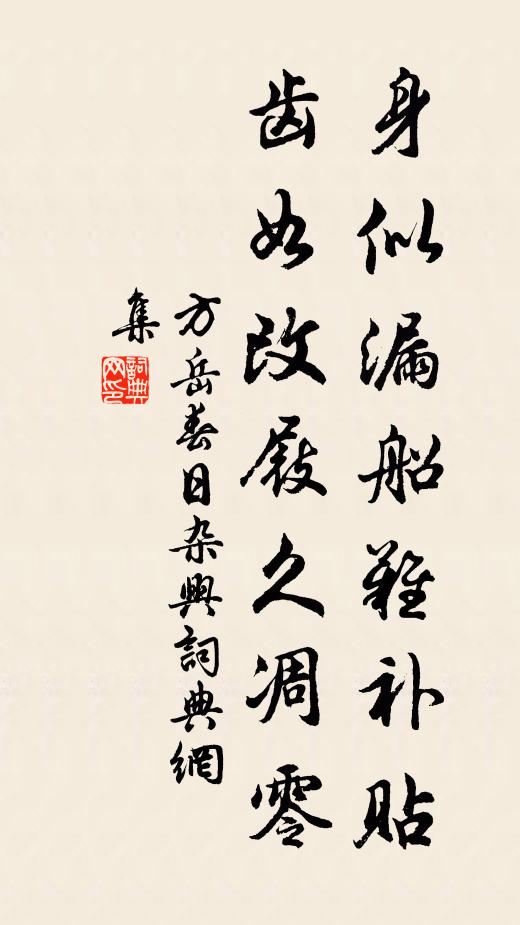 身似漏船難补貼
齿如改屐久凋零
方岳春日杂興詞典網
集
詞典
网印